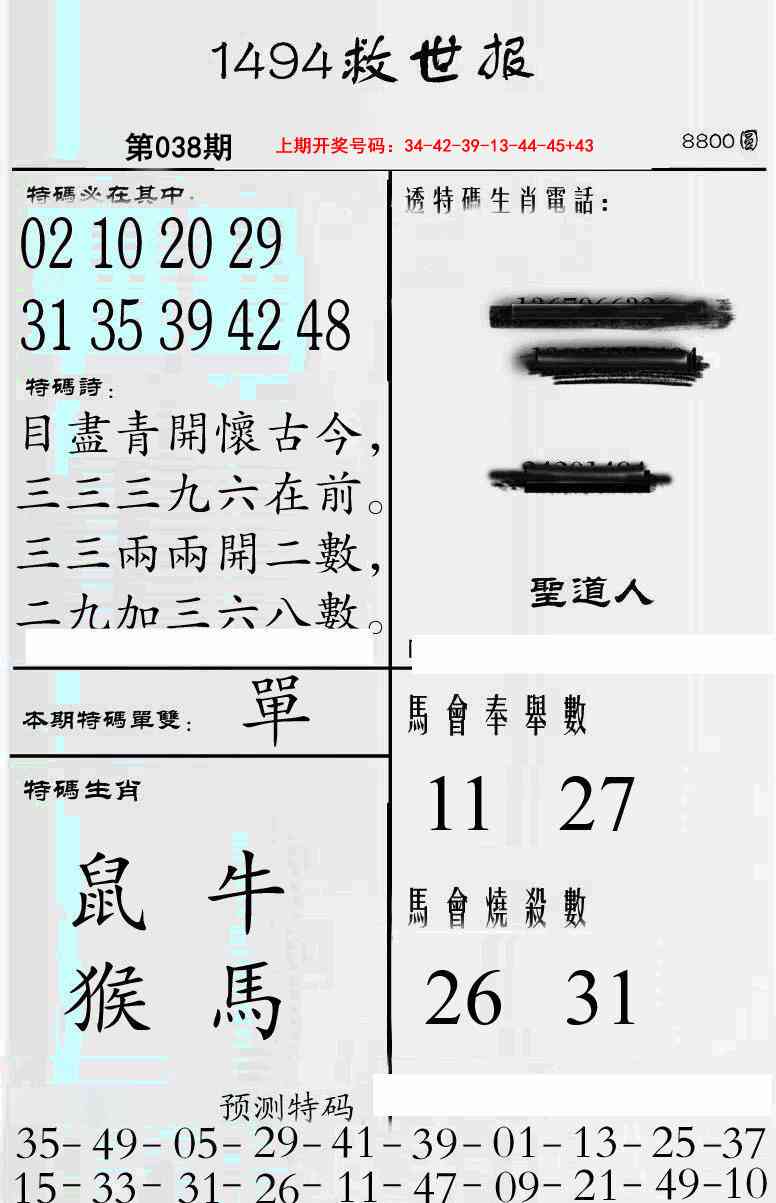 1494救世报
第038期
上期开奖号码：34-42-39-13-44-45+43
8800圆
特碼必在其中.
02 10 20 29
31 35 39 42 48
特碼詩：
目盡青開懷古今，
三三三九六在前。
三三兩兩開二數，
二九加三六八數。
透特碼生肖電話：
聖道人
本期特碼單雙： 單
特碼生肖
鼠 牛
猴 馬
馬會奉舉數
11 27
馬會燒殺數
26 31
预测特码
35-49-05-29-41-39-01-13-25-37
15-33-31-26-11-47-09-21-49-10